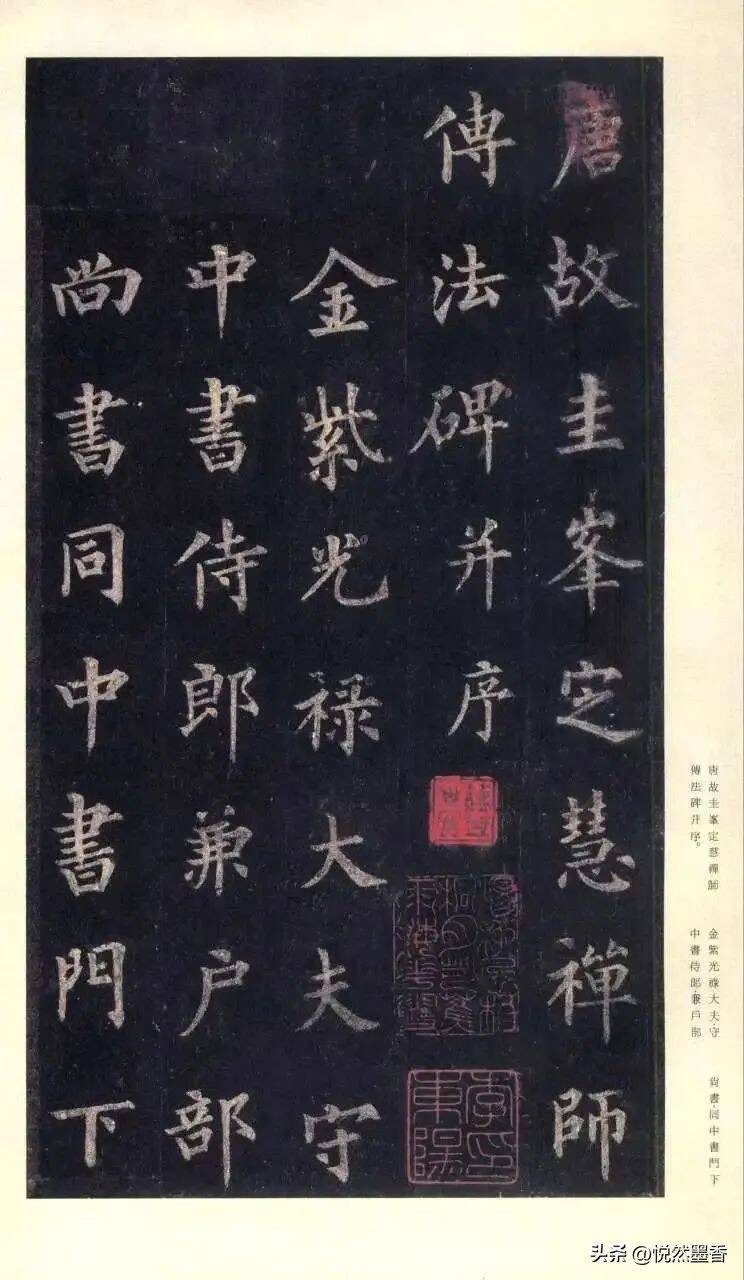 唐故圭峯定慧禪師
傳法碑并序
金紫光祿大夫守
中書侍郎兼户部
尚書同中書門下
唐故圭峯定慧禪師
傳法碑并序。
金紫光祿大夫守
中書侍郎·兼戶部
尚書·同中書門下
头条 @悦然墨香